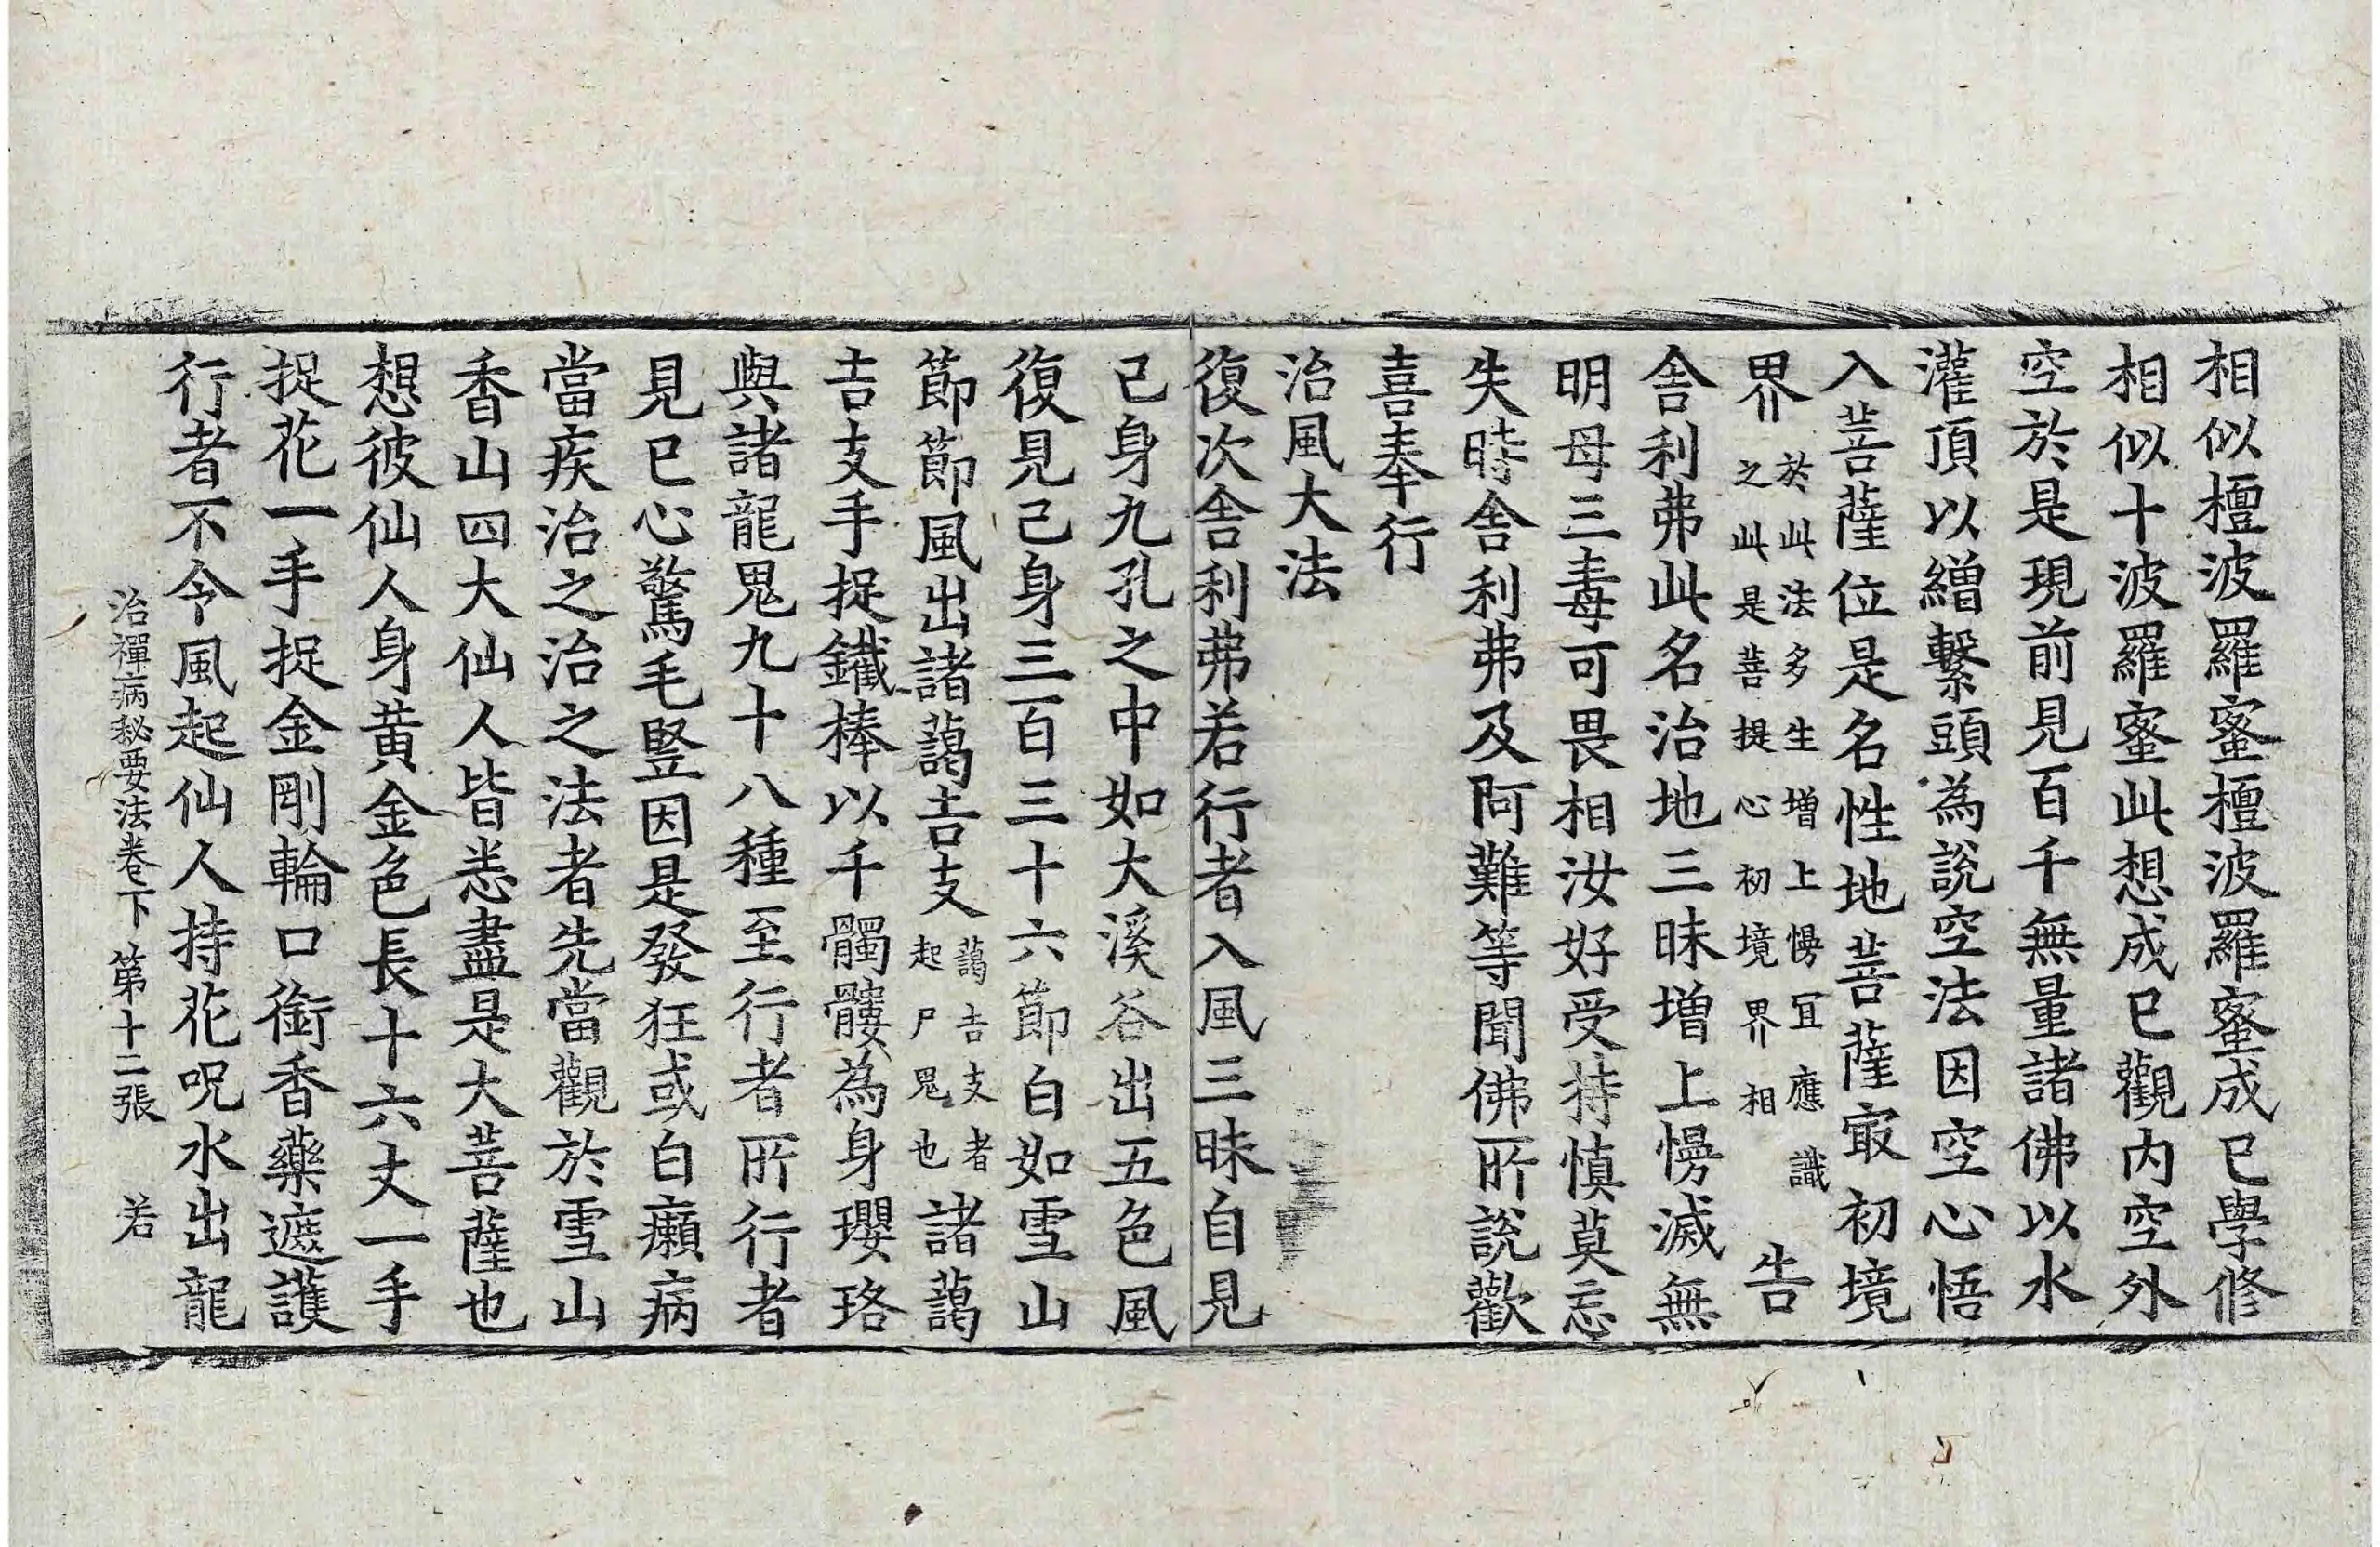 相似檀波羅蜜檀波羅蜜成已學修
相似十波羅蜜此想成已觀内空外
空於是現前見百千無量諸佛以水
灌頂以繒繫頭為說空法因空心悟
入菩薩位是名性地菩薩㝡初境
界於此法多生增上慢宜應識之此是菩提心初境界相告
舍利弗此名治地三昧增上慢滅無
明母三毒可畏相汝好受持慎莫忘
失時舍利弗及阿難等聞佛所說歡
喜奉行
治風大法
復次舍利弗若行者入風三昧自見
己身九孔之中如大溪谷出五色風
復見己身三百三十六節白如雪山
節節風出諸藹吉支藹吉支者起尸鬼也諸藹
吉支手捉鐵棒以千髑髏為身瓔珞
與諸龍鬼九十八種至行者所行者
見已心驚毛竪因是發狂或白癩病
當疾治之治之法者先當觀於雪山
香山四大仙人皆悉盡是大菩薩也
想彼仙人身黄金色長十六丈一手
捉花一手捉金剛輪口銜香藥遮護
行者不令風起仙人持花呪水出龍
治禪病秘要法卷下 第十二張 若